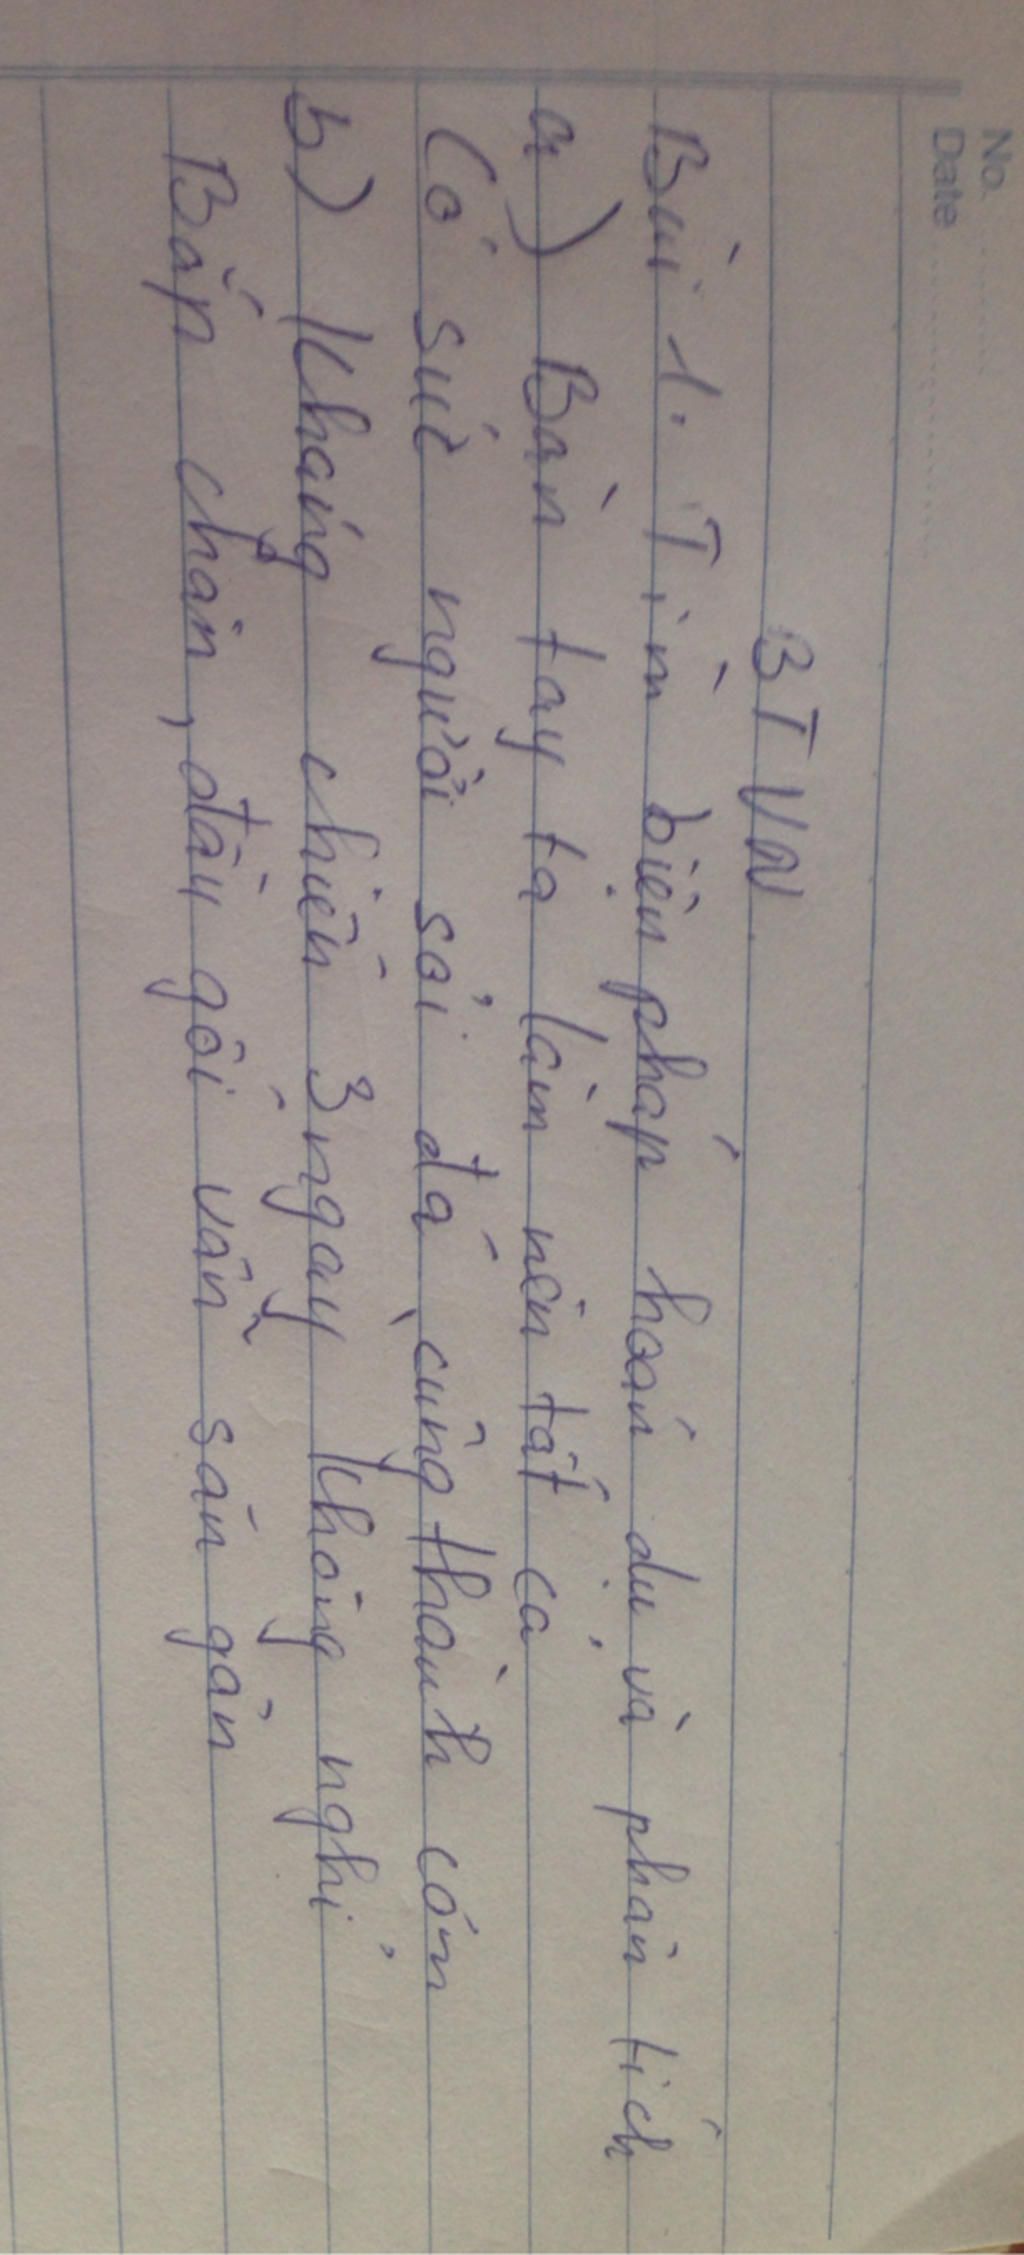 No.
Date
BTVN
Bài 1. Tìm biện pháp hoán dụ và phân tích
a) Bàn tay ta làm nên tất cả
Có sức người sỏi đá cũng thành cơm
b) Kháng chiến 3 ngày không nghỉ
Bắp chân, đầu gối vẫn săn gân